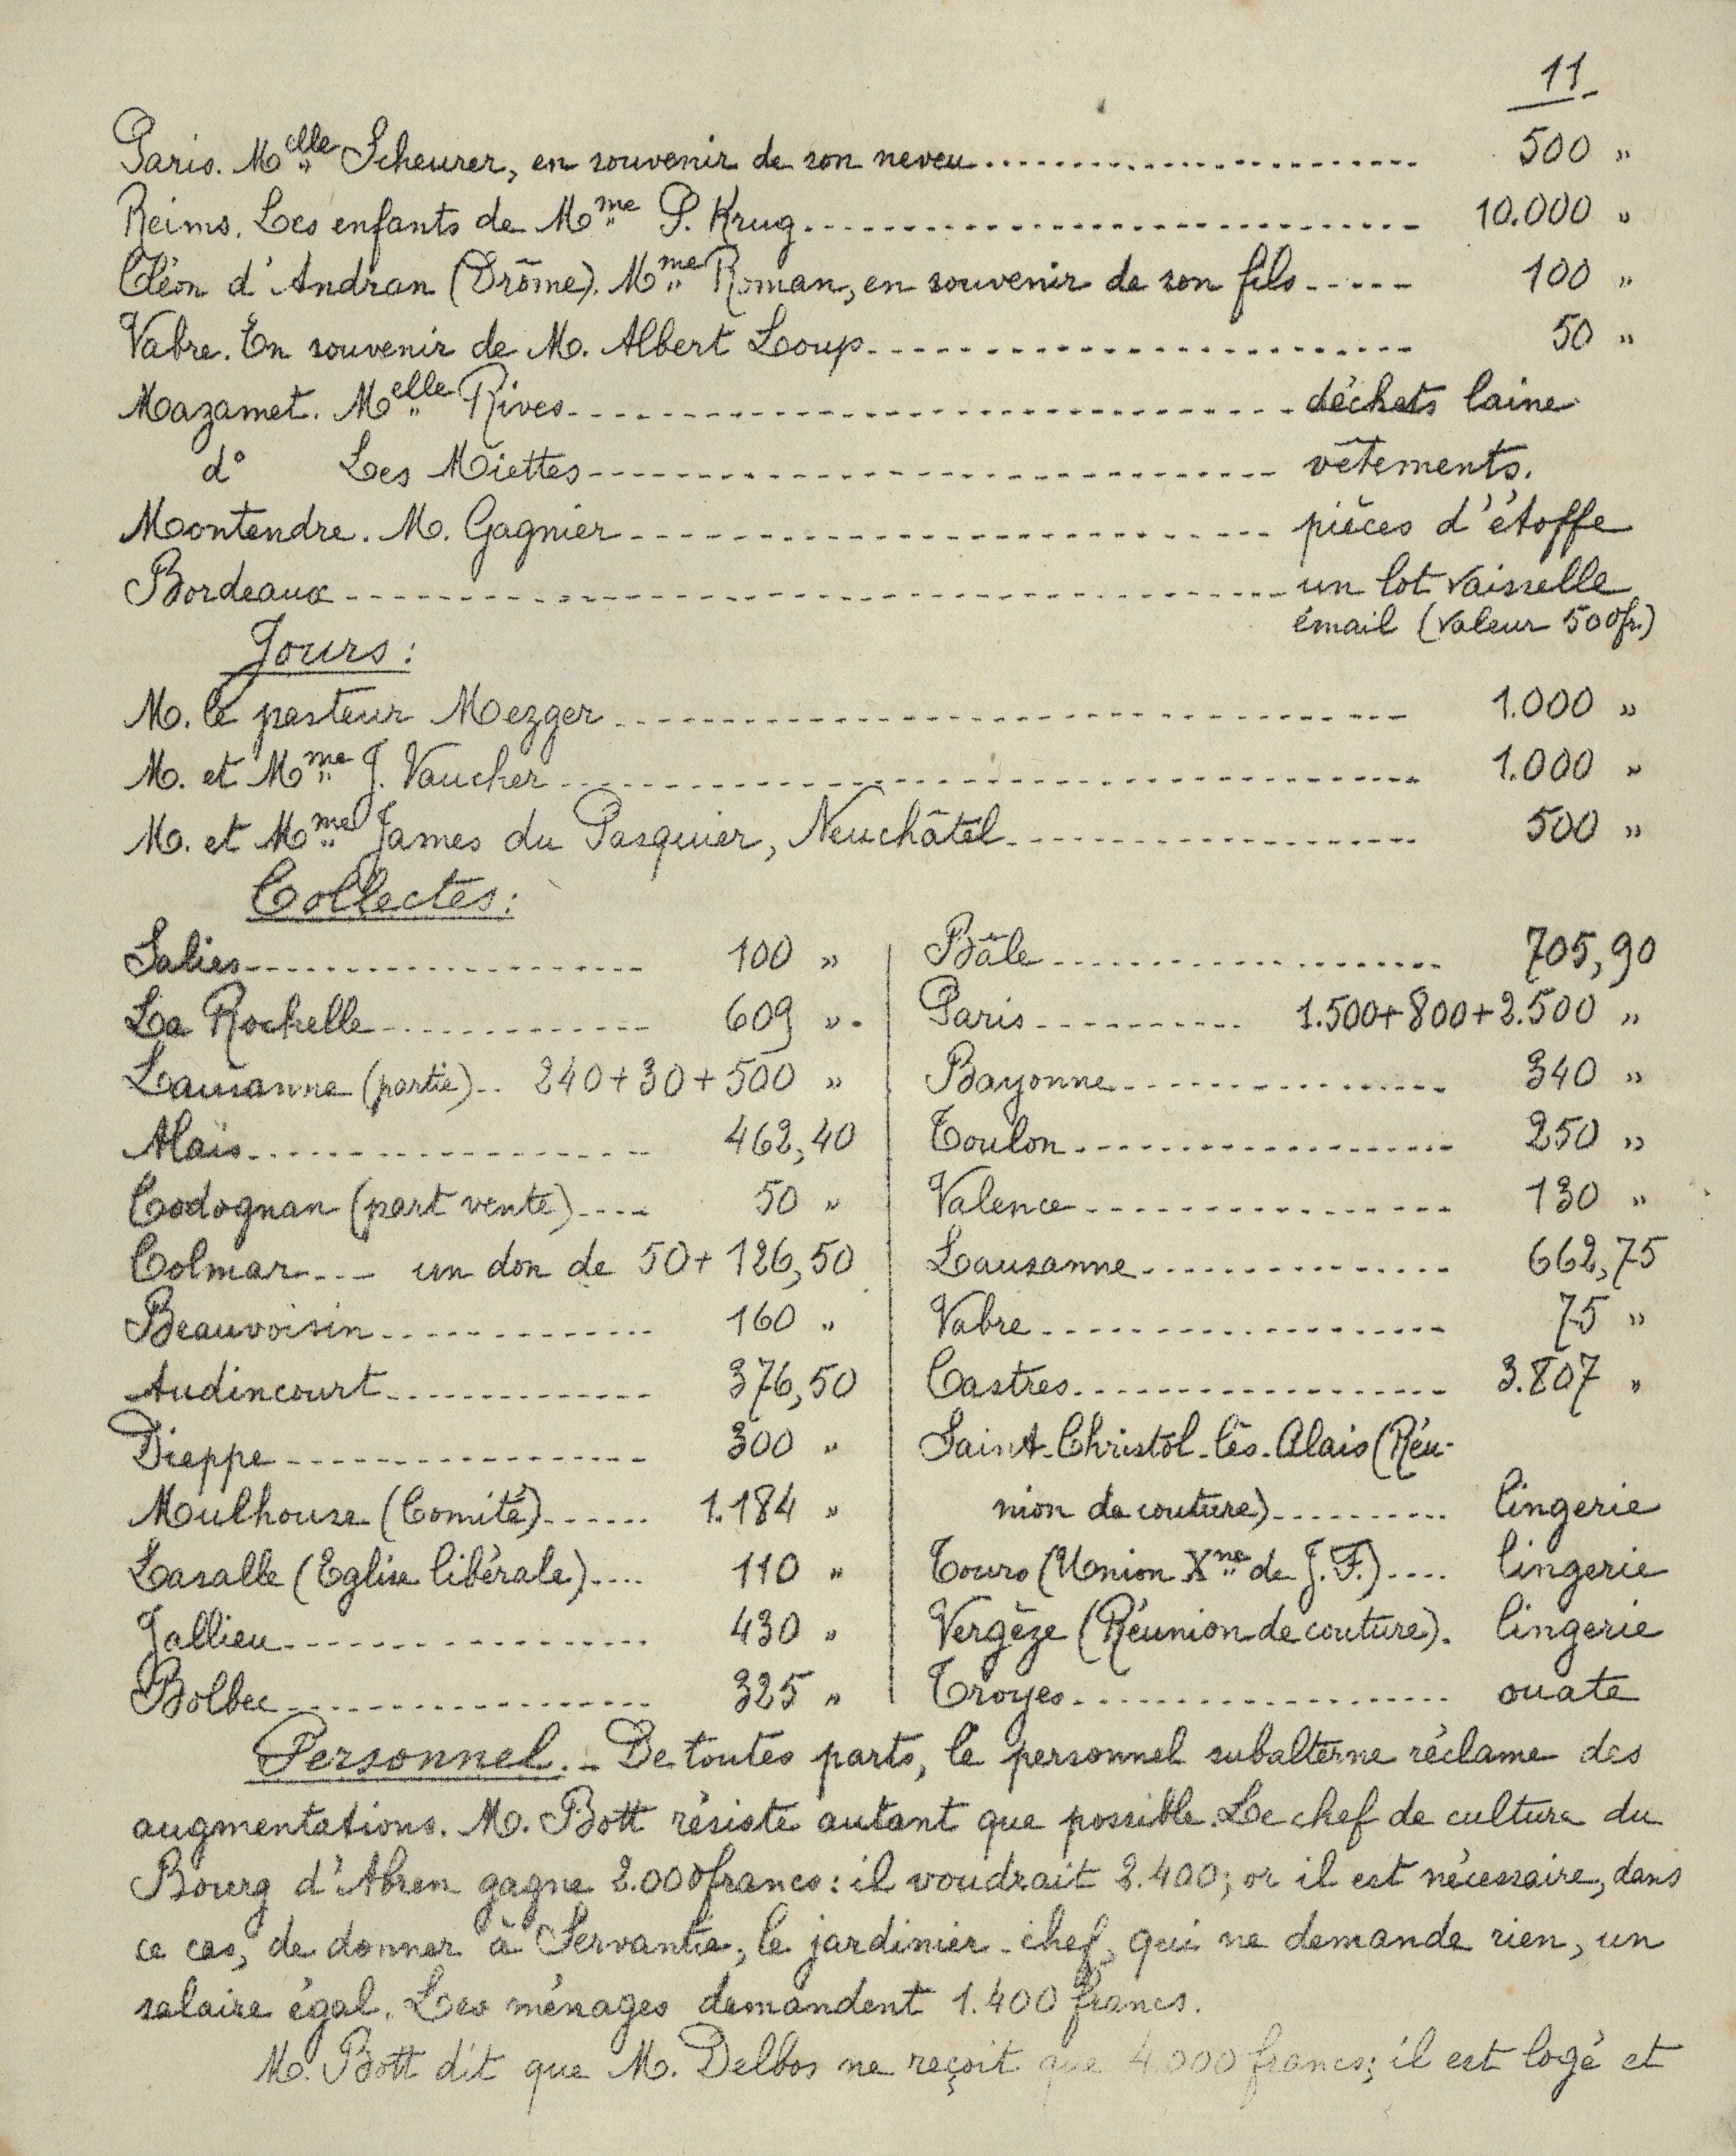 11
Paris. Melle Scheurer, en souvenir de son neveu 500 "
Reims. Les enfants de Mme P. Krug 10.000 "
Cléon d'Andran (Drôme). Mme Roman, en souvenir de son fils 100 "
Vabre. En souvenir de M. Albert Loup 50 "
Mazamet. Melle Rives déchets laine
d° Les Miettes vêtements.
Montendre. M. Gagnier pièces d'étoffe
Bordeaux un lot vaisselle
émail (valeur 500fr.)
Jours:
M. le pasteur Mezger 1.000 "
M. et Mme J. Vaucher 1.000 "
M. et Mme James du Pasquier, Neuchâtel 500 "
Collectes:
Salies 100 "
La Rochelle 609 "
Lausanne (partie) 240+30+500 "
Alais 462,40
Codognan (part vente) 50 "
Colmar un don de 50+126,50
Beauvoisin 160 "
Audincourt 376,50
Dieppe 300 "
Mulhouse (Comité) 1.184 "
Lasalle (Eglise libérale) 110 "
Jallieu 430 "
Bolbec 325 "
Bâle 705,90
Paris 1.500+800+2.500 "
Bayonne 340 "
Toulon 250 "
Valence 130 "
Lausanne 662,75
Vabre 75 "
Castres 3.807 "
Saint-Christol-lès-Alais (Réu-
nion de couture) lingerie
Tours (Union Xne de J.F.) lingerie
Vergèze (Réunion de couture). lingerie
Troyes ouate
Personnel. - De toutes parts, le personnel subalterne réclame des
augmentations. M. Bott résiste autant que possible. Le chef de culture du
Bourg d'Abren gagne 2.000 francs: il voudrait 2.400; or il est nécessaire, dans
ce cas, de donner à Servantie, le jardinier-chef, qui ne demande rien, un
salaire égal. Les ménages demandent 1.400 francs.
M. Bott dit que M. Delbos ne reçoit que 4.000 francs; il est logé et